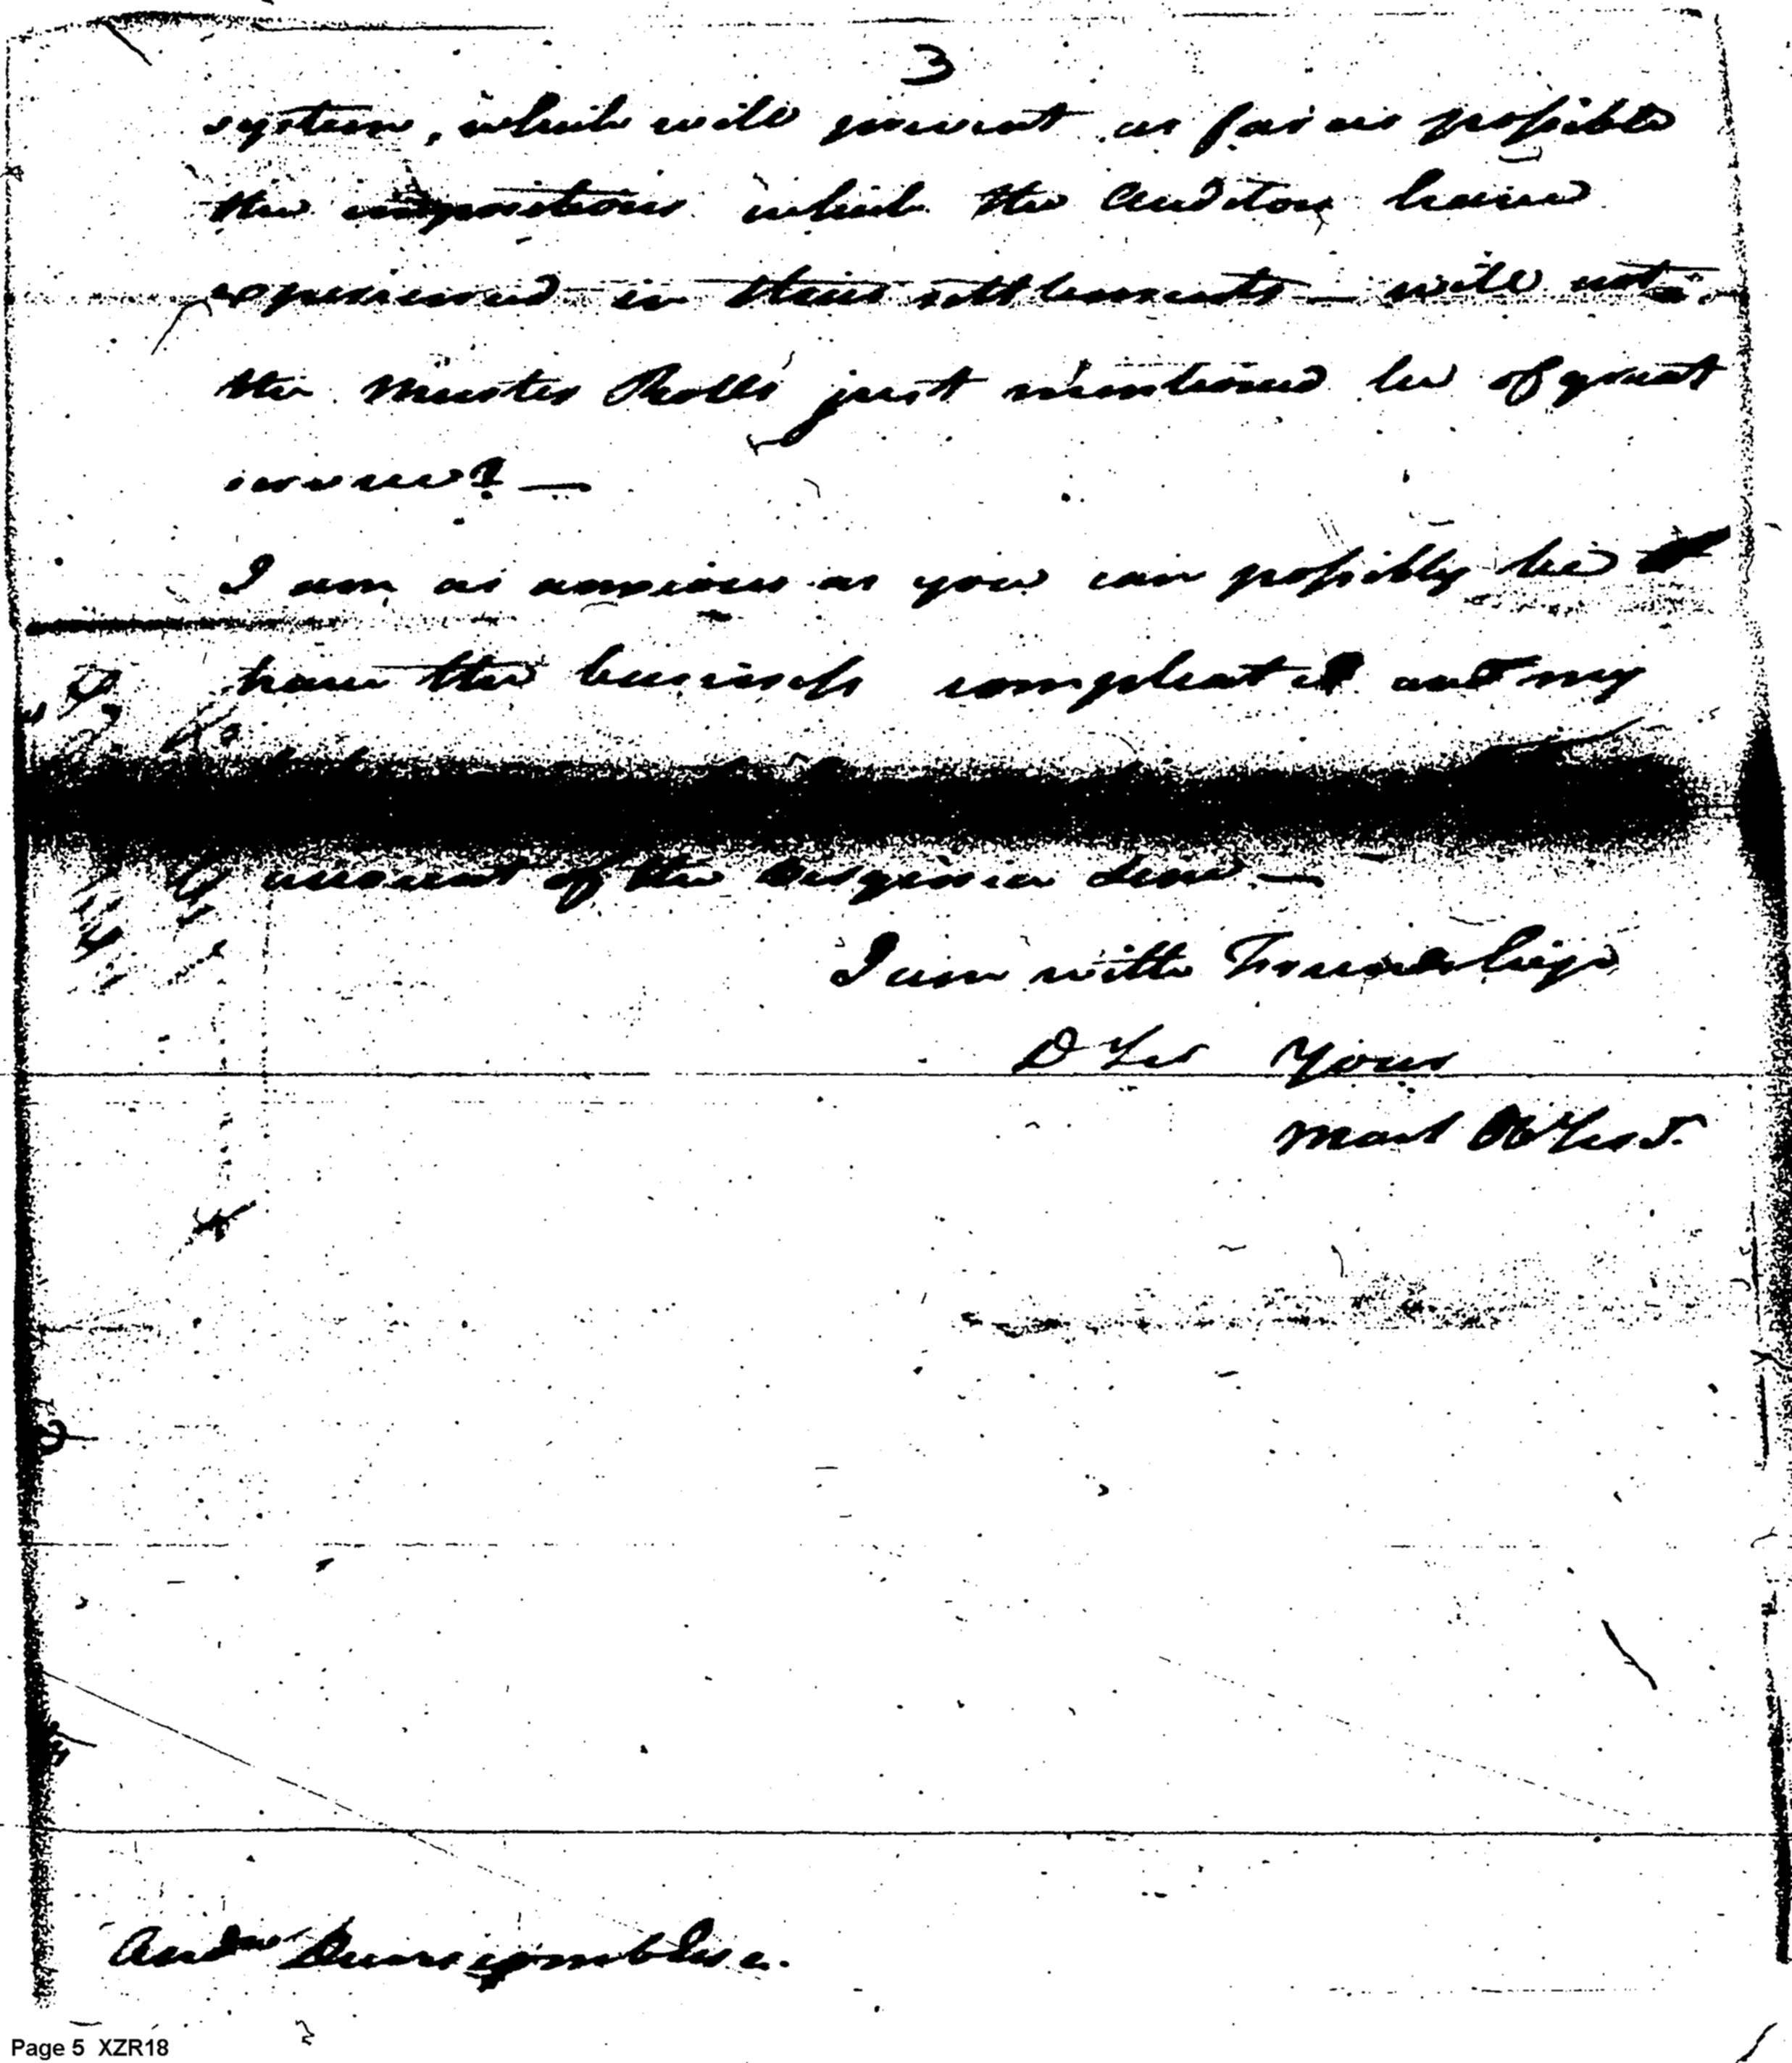 3
system, which will prevent as far as possible
the impositions which the Auditors have
experienced in their settlements — will not
the Muster Rolls just mentioned be of great
service? —
I am as anxious as you can possibly be to
have the business compleated and my
account of the Virginia Line. —
I am with Friendship
D Sir Yours
And.w Dunscomb Esq.
Page 5 XZR18